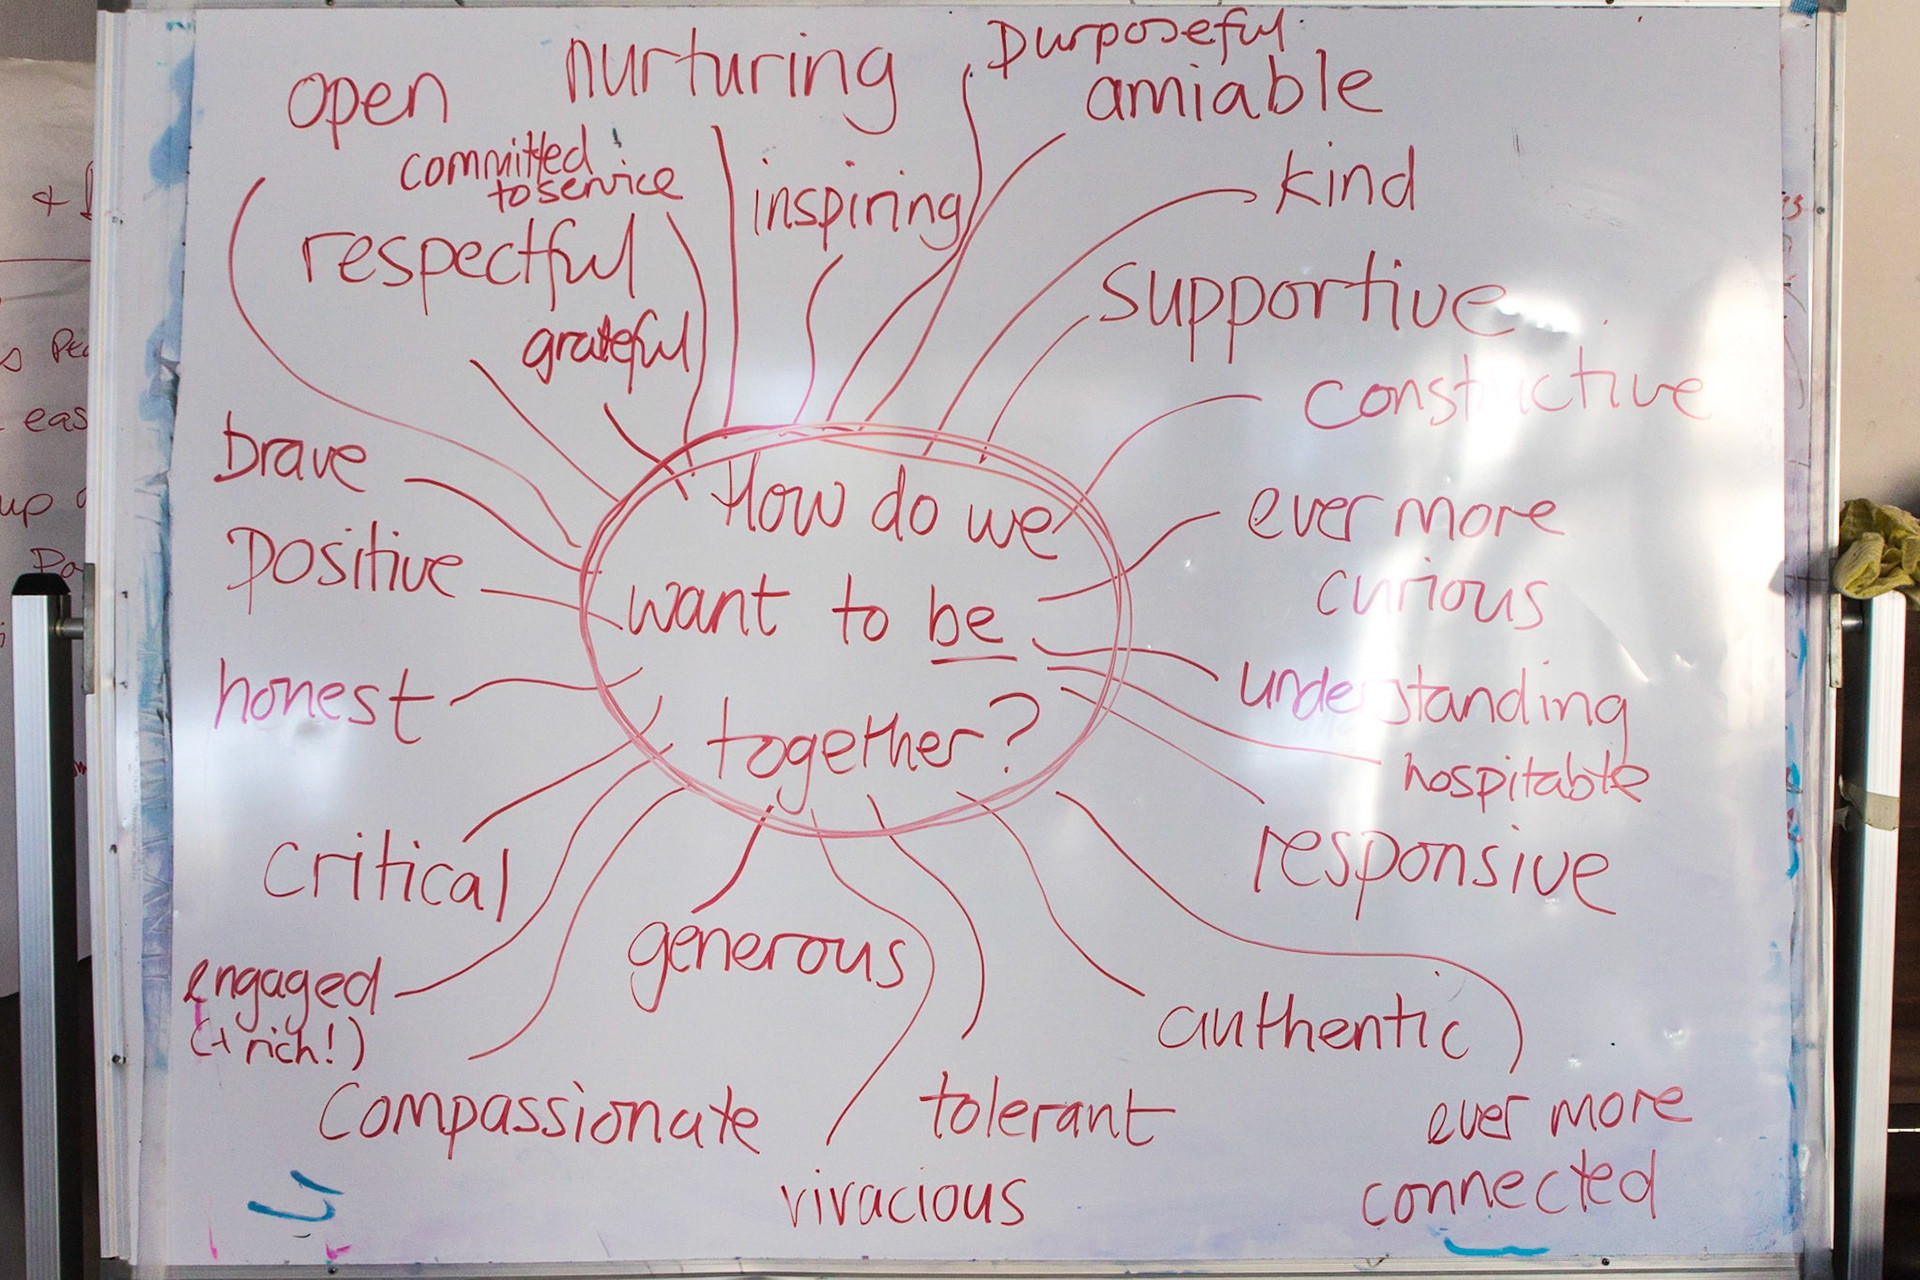 purposeful
nurturing
open
amiable
committed
to service
kind
inspiring
respectful
supportive
grateful
constructive
brave
How do we
ever more
curious
positive
want to be
honest
understanding
together?
hospitable
critical
responsive
generous
engaged
(+ rich!)
authentic
compassionate
tolerant
ever more
connected
vivacious
eas
up